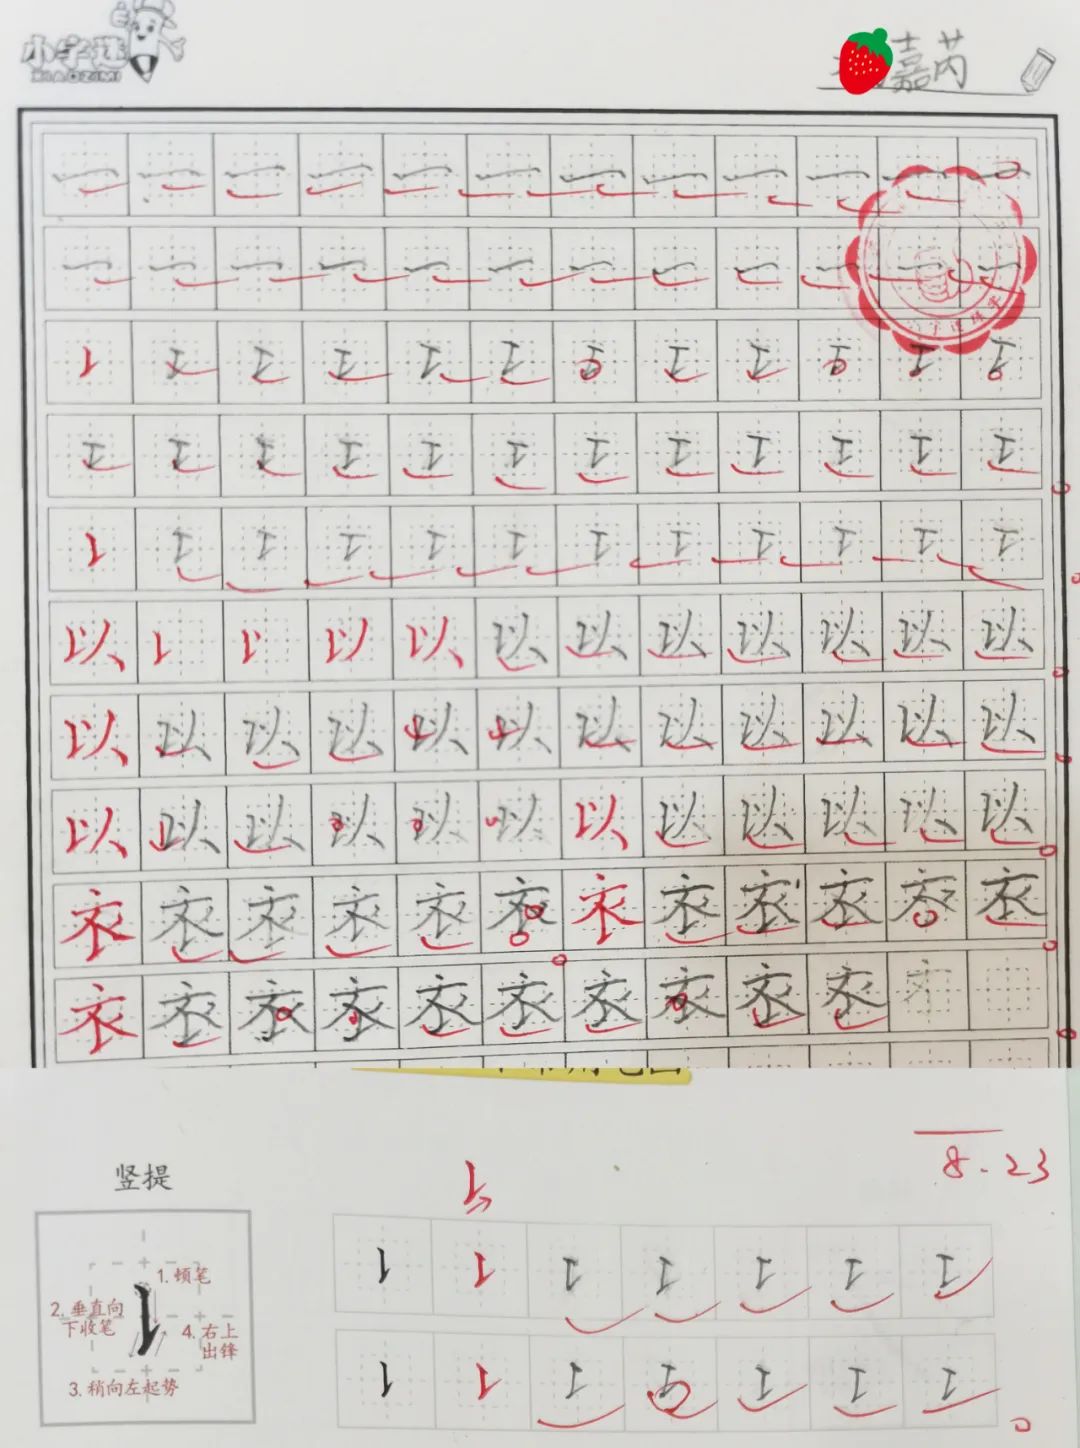 小字迷
XIAOZIMI
嘉芮
以 以 以 以 以 以 以 以 以 以
以 以 以 以 以 以 以 以 以 以 以 以
以 以 以 以 以 以 以 以 以 以 以 以
衣 衣 衣 衣 衣 衣 衣 衣 衣 衣 衣 衣
衣 衣 衣 衣 衣 衣 衣 衣 衣 衣
8.23
竖提
1. 顿笔
2. 垂直向
下收笔
4. 右上
出锋
3. 稍向左起势